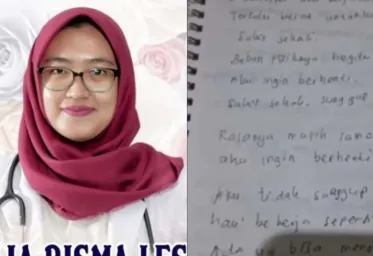 IA RISMA LES
Terlalu berat
Sakit sekali.
Beban fisiknya begitu
Aku ingin berhenti.
Sakit sekali, sunggup
Rasanya masih sama
aku ingin berhenti
Aku tidak sanggup
hari bekerja seperti
Ada yg bisa meno